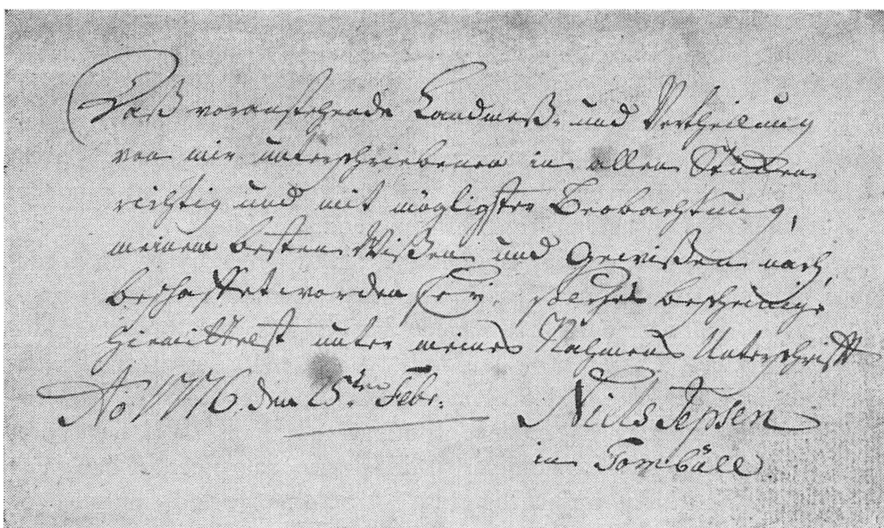 Daß voranstehende Landmeß- und Vertheilung
von mir unterschriebenen in allen Stücken
richtig und mit mögligster Beobachtung,
meinem besten Wißen und Gewißen nach,
beschaffet worden sey. solches bescheinige
hiemittelst unter meines Nahmens Unterschrifft
Ao 1776. den 25ten Febr.
Niels Jepsen
in Tombüll